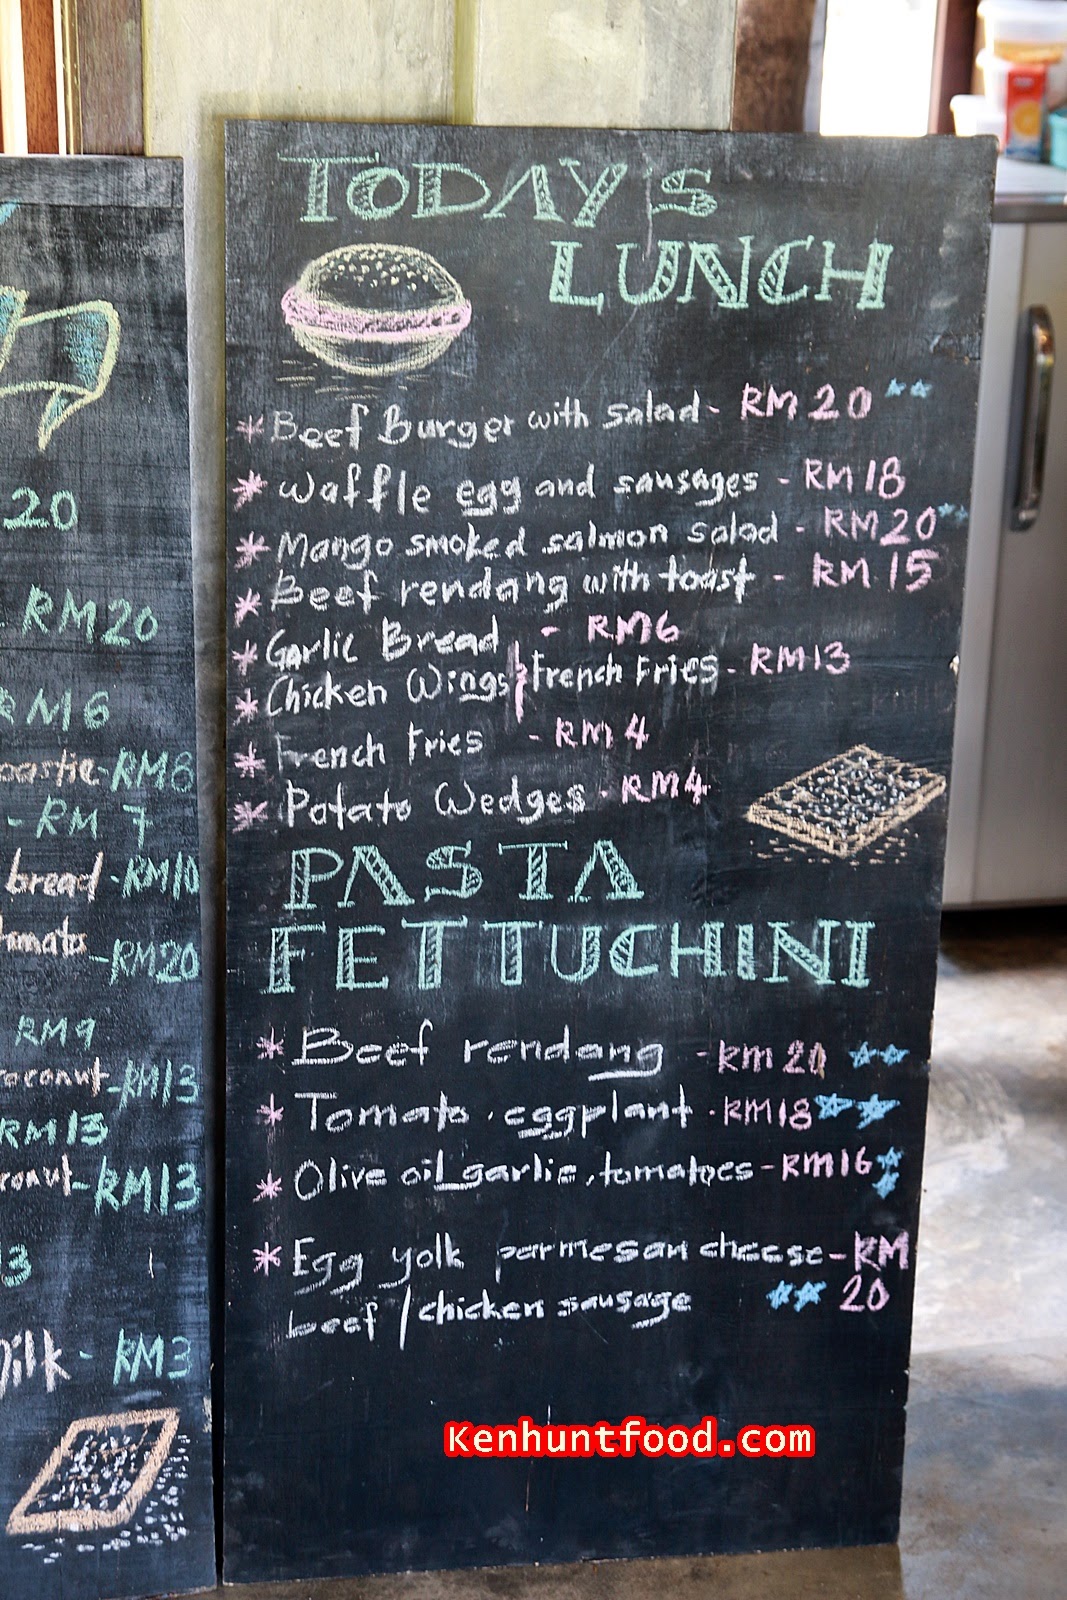 TODAY'S
LUNCH
* Beef Burger with salad - RM 20
* Waffle egg and sausages - RM 18
* Mango smoked salmon salad - RM 20
* Beef rendang with toast - RM 15
* Garlic Bread - RM6
* Chicken Wings & French Fries - RM13
* French Fries - RM 4
* Potato Wedges - RM4
PASTA
FETTUCHINI
* Beef rendang - RM 20
* Tomato eggplant - RM18
* Olive oil garlic, tomatoes - RM16
* Egg yolk parmesan cheese - RM
beef / chicken sausage 20
Kenhuntfood.com
20
- RM20
RM6
- RM8
- RM 7
bread - RM10
- RM20
RM9
coconut - RM13
RM13
- RM13
3
Milk - RM3